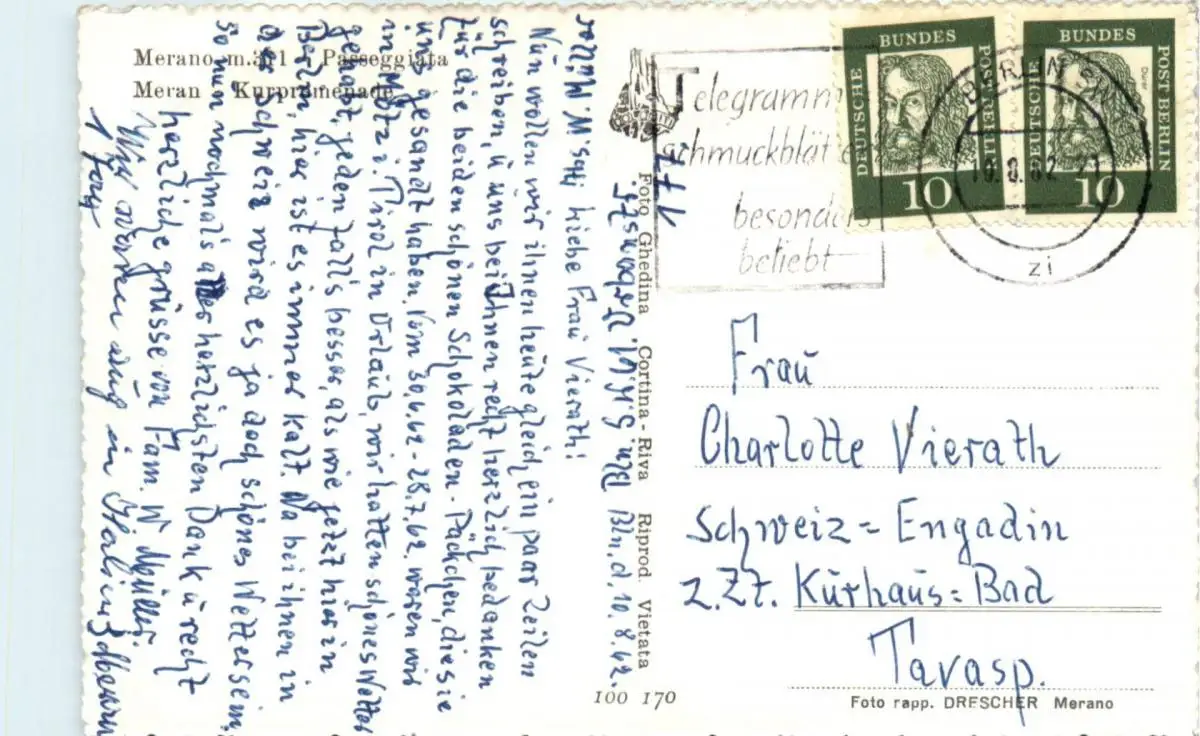 Merano m.311 - Passeggiata
Meran - Kurpromenade
Telegramm
schmuckblätter
besonders
beliebt
BUNDES
DEUTSCHE
POST BERLIN
10
BUNDES
DEUTSCHE
POST BERLIN
Dürer
10
BERLIN SW
10.8.62-21
zi
Foto Ghedina Cortina - Riva Riprod. Vietata
Bln, d. 10.8.62.
Liebe Frau Vierath!
Nun wollen wir ihnen heute gleich ein paar Zeilen
schreiben, ü uns bei Ihnen recht herzlich bedanken
für die beiden schönen Schokoladen-Päckchen, die sie
uns gesandt haben. Vom 30.6.62 - 28.7.62. waren wir
in Mötz i. Tirol in Urlaub, wir hatten schönes Wetter
gehabt, jedenfalls besser, als wie jetzt hier in
Berlin, hier ist es immer kalt. Na bei ihnen in
der Schweiz wird es ja doch schönes Wetter sein,
so nun nochmals allerherzlichsten Dank ü recht
herzliche grüsse von Fam. W Müller.
Wir waren auch in Italien
1 Tag
Frau
Charlotte Vierath
Schweiz = Engadin
z.Zt. Kurhaus = Bad
Tarasp.
100 170
Foto rapp. DRESCHER Merano